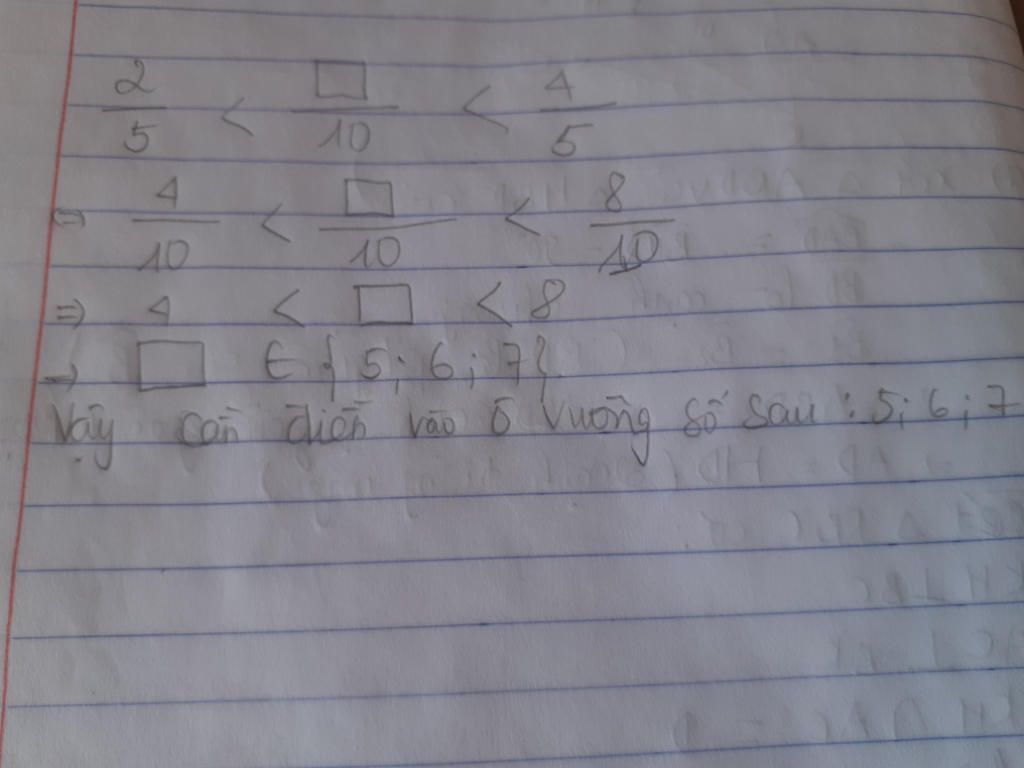 2/5 < □/10 < 4/5
⇒ 4/10 < □/10 < 8/10
⇒ 4 < □ < 8
→ □ ∈ {5; 6; 7}
Vậy cần điền vào ô vuông số sau: 5; 6; 7